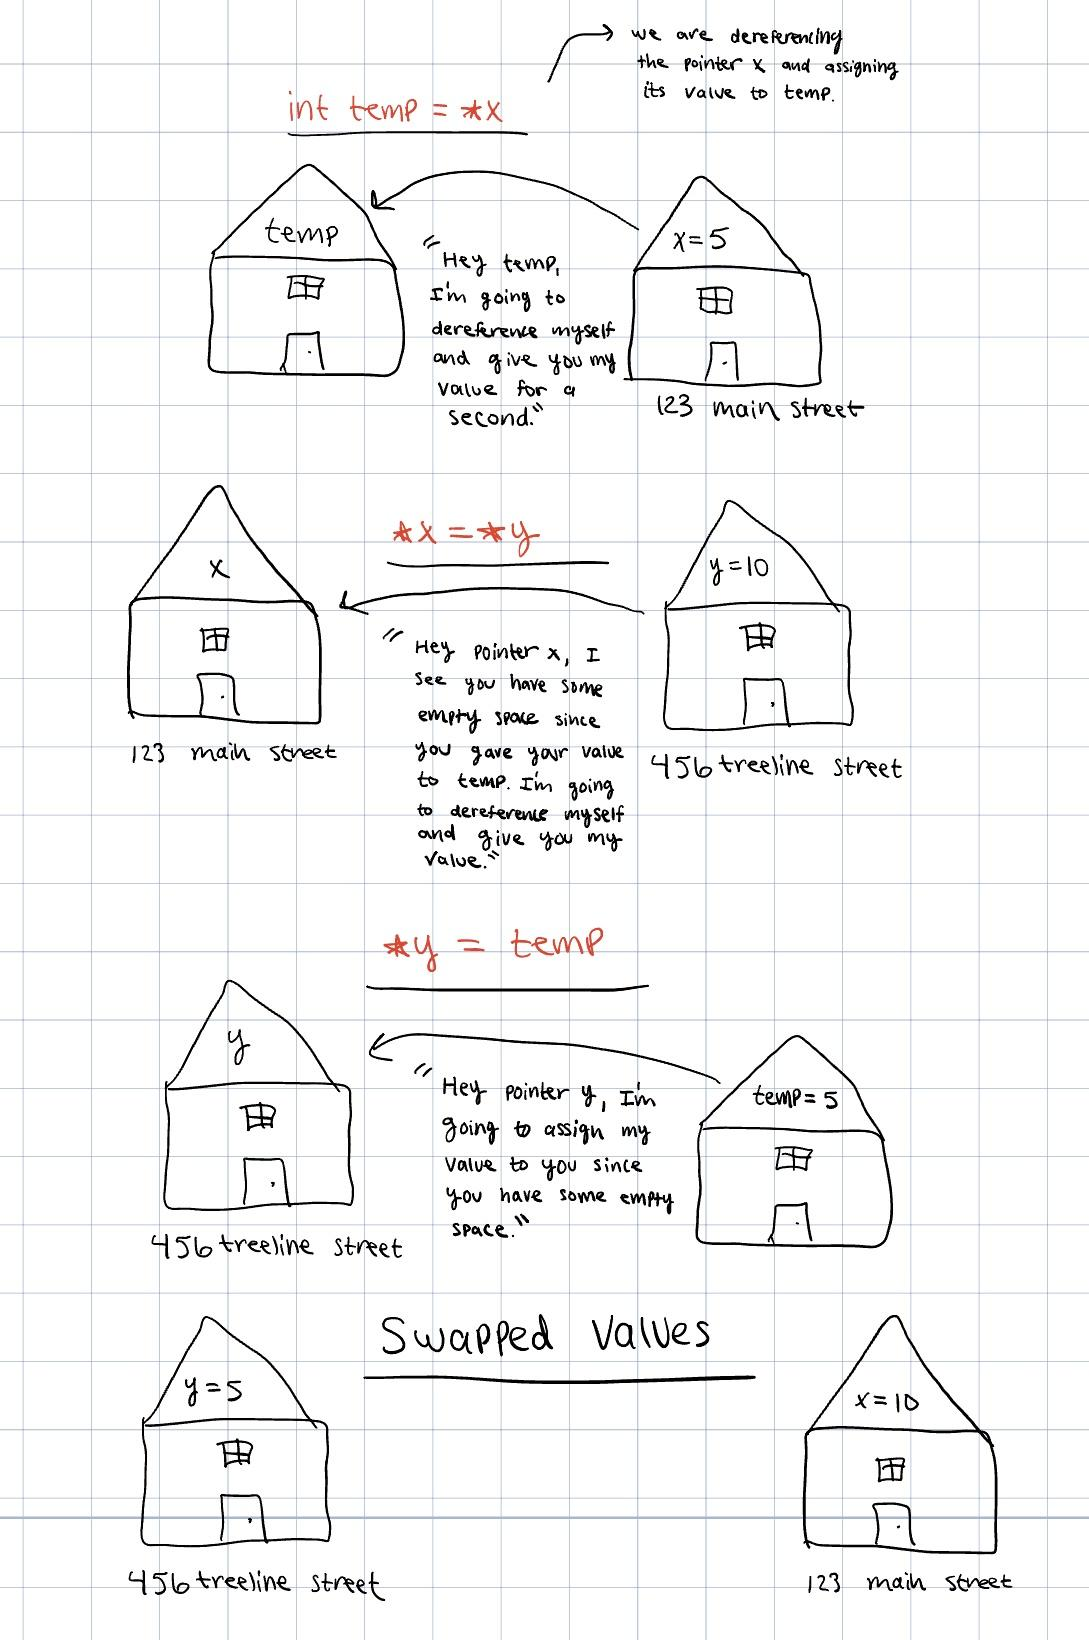 we are dereferencing
the pointer x and assigning
its value to temp.
int temp = *x
temp
x=5
"Hey temp,
I'm going to
dereference myself
and give you my
value for a
second."
123 main street
*x = *y
x
y=10
"Hey pointer x, I
see you have some
empty space since
you gave your value
to temp. I'm going
to dereference myself
and give you my
value."
123 main street
456 treeline street
*y = temp
y
temp=5
"Hey pointer y, I'm
going to assign my
value to you since
you have some empty
space."
456 treeline street
Swapped Values
y=5
x=10
456 treeline street
123 main street